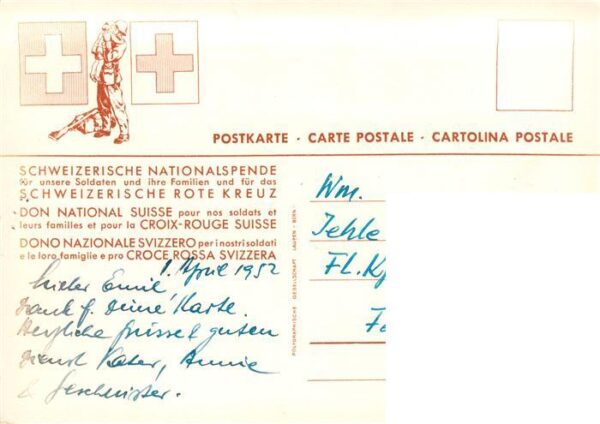 POSTKARTE · CARTE POSTALE · CARTOLINA POSTALE
SCHWEIZERISCHE NATIONALSPENDE
für unsere Soldaten und ihre Familien und für das
SCHWEIZERISCHE ROTE KREUZ
DON NATIONAL SUISSE pour nos soldats et
leurs familles et pour la CROIX-ROUGE SUISSE
DONO NAZIONALE SVIZZERO per i nostri soldati
e le loro famiglie e pro CROCE ROSSA SVIZZERA
1. April 1952
Lieber Emil
Dank f. Deine Karte.
Herzliche Grüsse & guten
Dienst Vater, Annie
& Geschwister.
POLYGRAPHISCHE GESELLSCHAFT · LAUPEN-BERN
Wm.
Jehle
FL. Kp